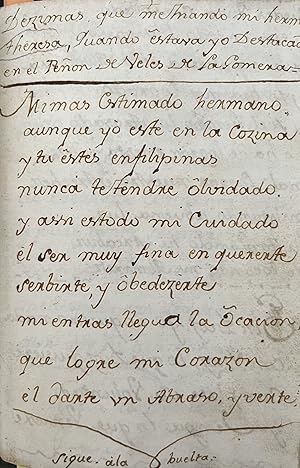 Dezimas, que me mandó mi herm
Theresa, Quando estava yo Destacad
en el Peñon de Veles de la Gomera
Mi mas Estimado hermano
aunque yo este en la Cozina
y tu éstes enfilipinas
nunca tetendre olvidado.
y assi estodo mi Cuidado
él ser muy fina en quererte
serbirte, y Obedezerte
mientras llegua la Ocacion
que logre mi Corazon
él darte vn Abraso, y verte
sigue. ála buelta.